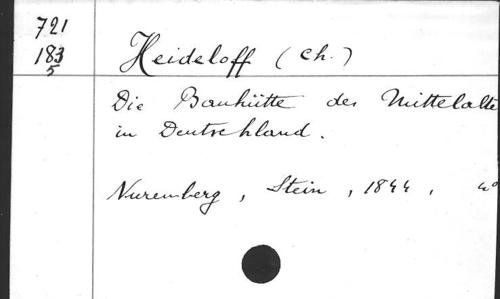 721
183
5
Heideloff (Ch.)
Die Bauhütte des Mittelalte
in Deutschland.
Nuremberg, Stein, 1844, 4º